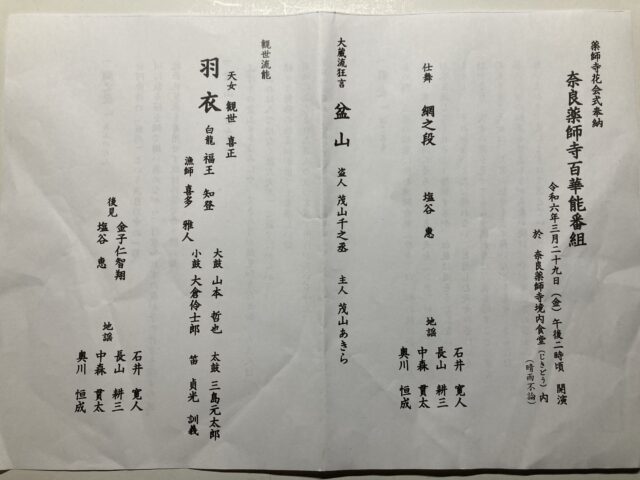 薬師寺花会式奉納
奈良薬師寺百華能番組
令和六年三月二十九日（金）午後二時頃　開演
於　奈良薬師寺境内食堂（じきどう）内
（晴雨不論）
仕舞　網之段　塩谷　恵
地謡　石井　寛人
長山　耕三
中森　貫太
奥川　恒成
大蔵流狂言　盆山　盗人　茂山千之丞　主人　茂山あきら
観世流能
羽衣
天女　観世　喜正
白龍　福王　知登
漁師　喜多　雅人
大鼓　山本　哲也
小鼓　大倉伶士郎
太鼓　三島元太郎
笛　貞光　訓義
後見　金子仁智翔
塩谷　恵
地謡　石井　寛人
長山　耕三
中森　貫太
奥川　恒成